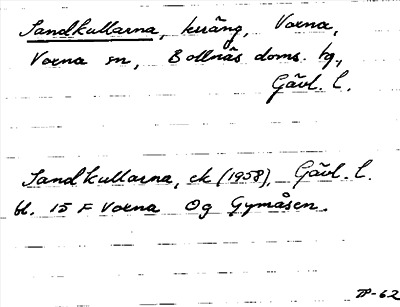 Sandkullarna, kuäng, Voxna,
Voxna sn, Bollnäs doms. hg.,
Gävl. l.
Sandkullarna, ek (1958), Gävl. l.
bl. 15 F Voxna Og Gymåsen.
-62